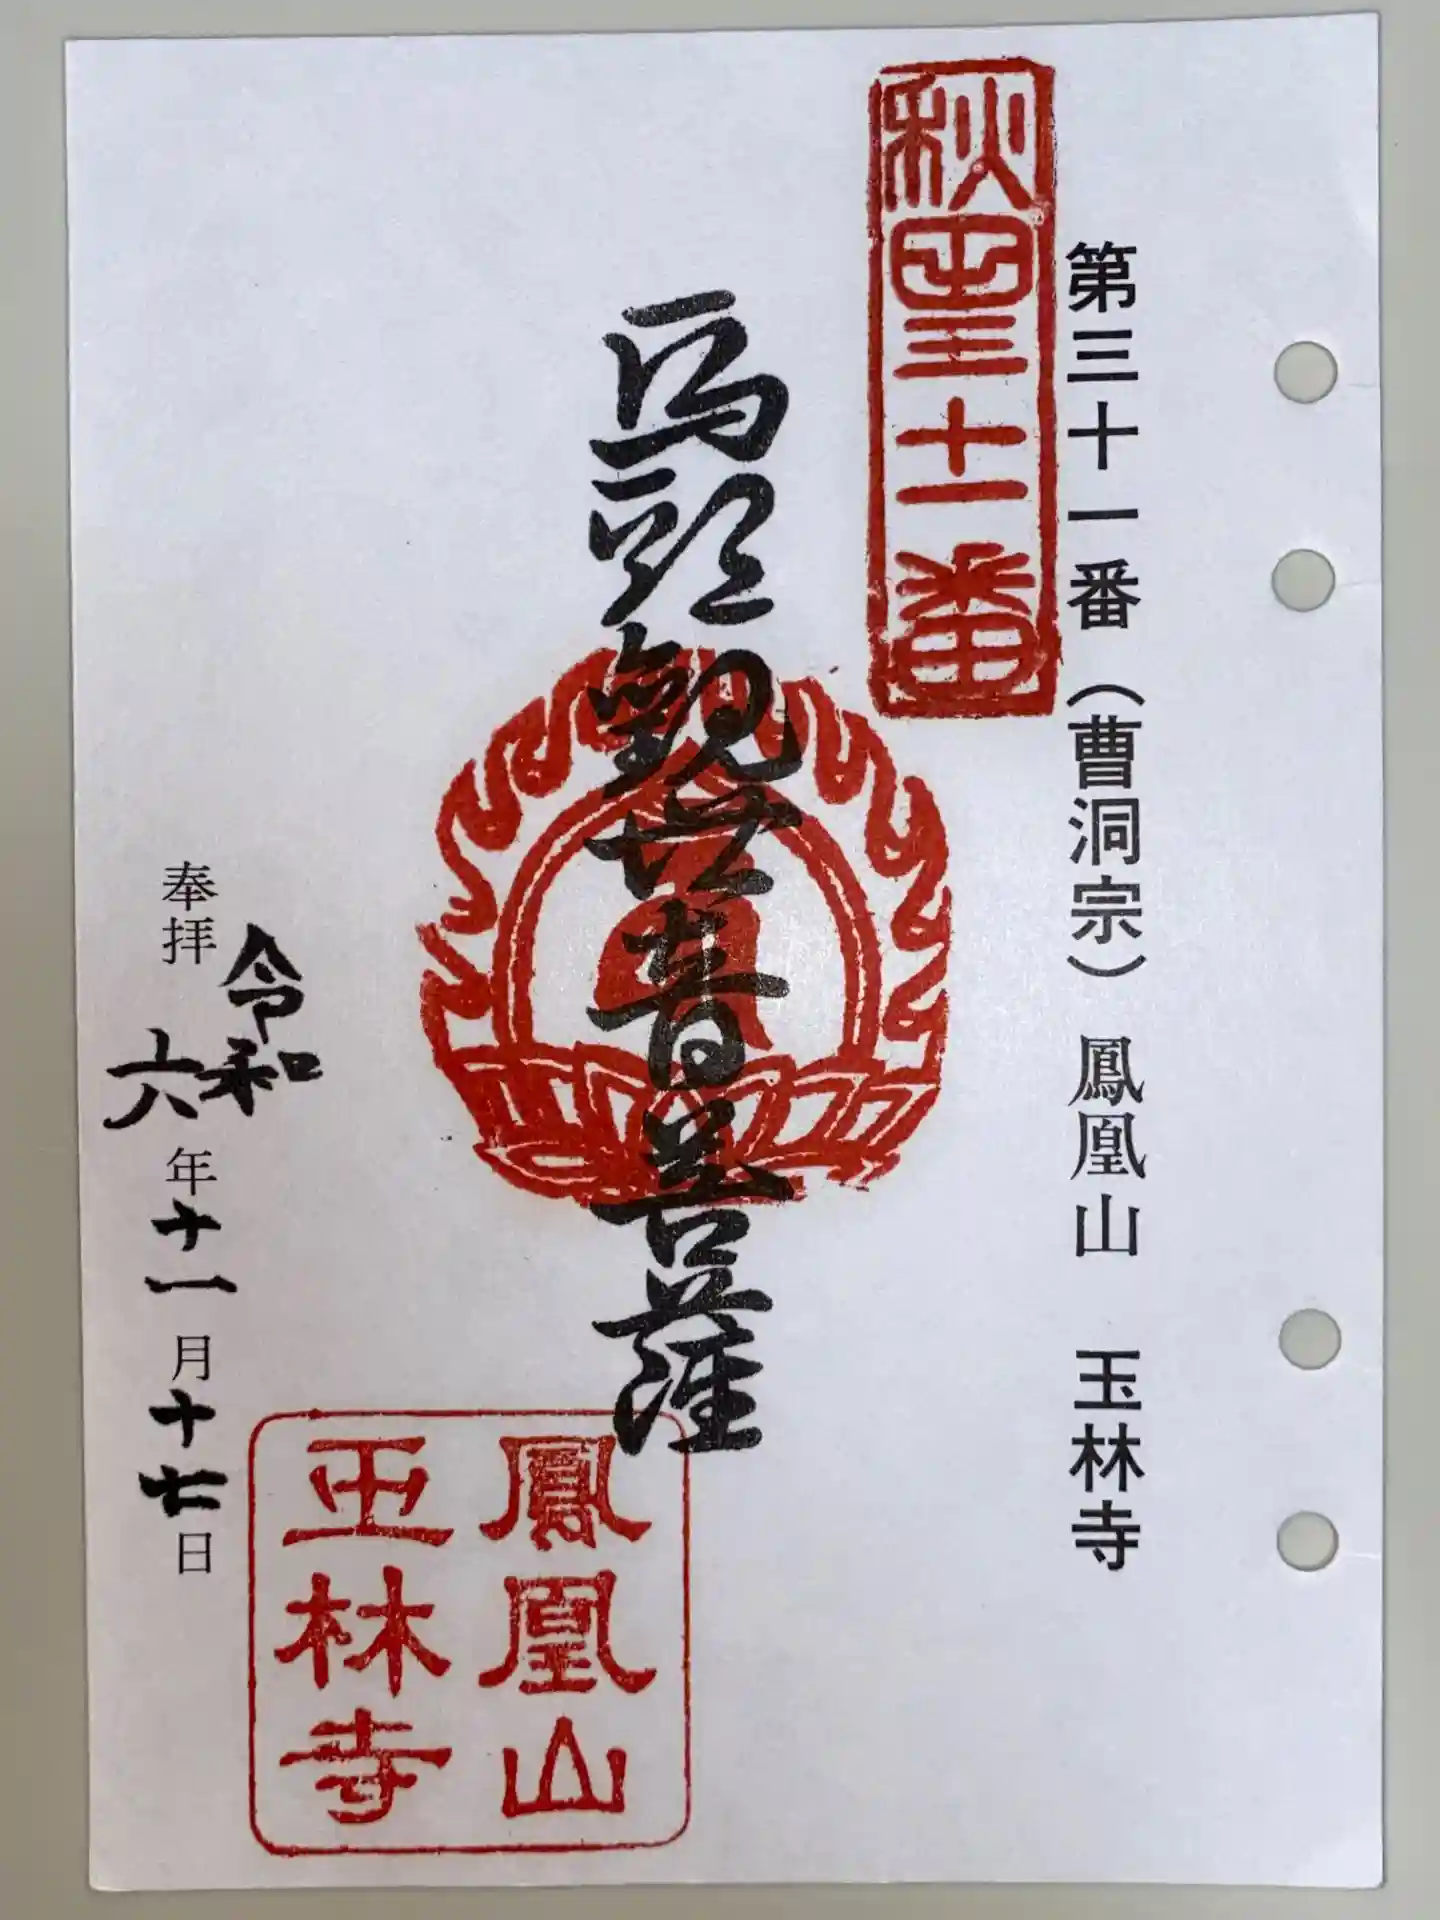 第三十一番（曹洞宗）鳳凰山　玉林寺
秋田三十一番
馬頭観世音菩薩
鳳凰山
玉林寺
奉拝　令和六年十一月十七日